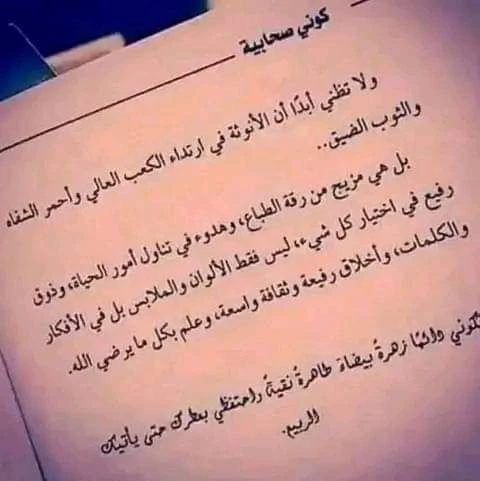 كوني صحابية
ولا تظني أبدًا أن الأنوثة في ارتداء الكعب العالي وأحمر الشفاه
والثوب الضيق..
بل هي مزيج من رقة الطباع، وهدوء في تناول أمور الحياة، وذوق
رفيع في اختيار كل شيء، ليس فقط الألوان والملابس بل في الأفكار
والكلمات، وأخلاق رفيعة وثقافة واسعة، وعلم بكل ما يرضي الله.
فكوني دائمًا زهرة بيضاء طاهرة نقية واحتفظي بعطرك حتى يأتيك
الربيع.